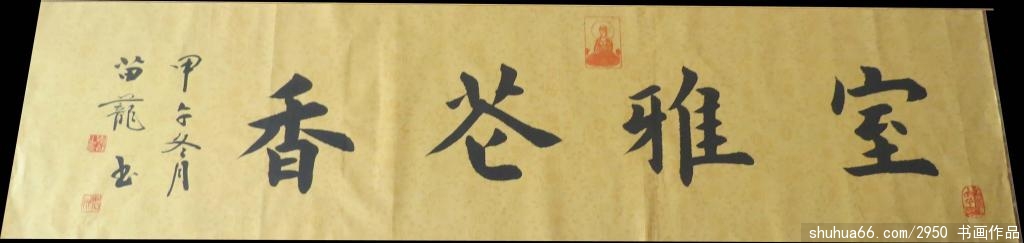 室雅花香
甲午冬月
苗蘢书
shuhua66.com/2950 书画作品